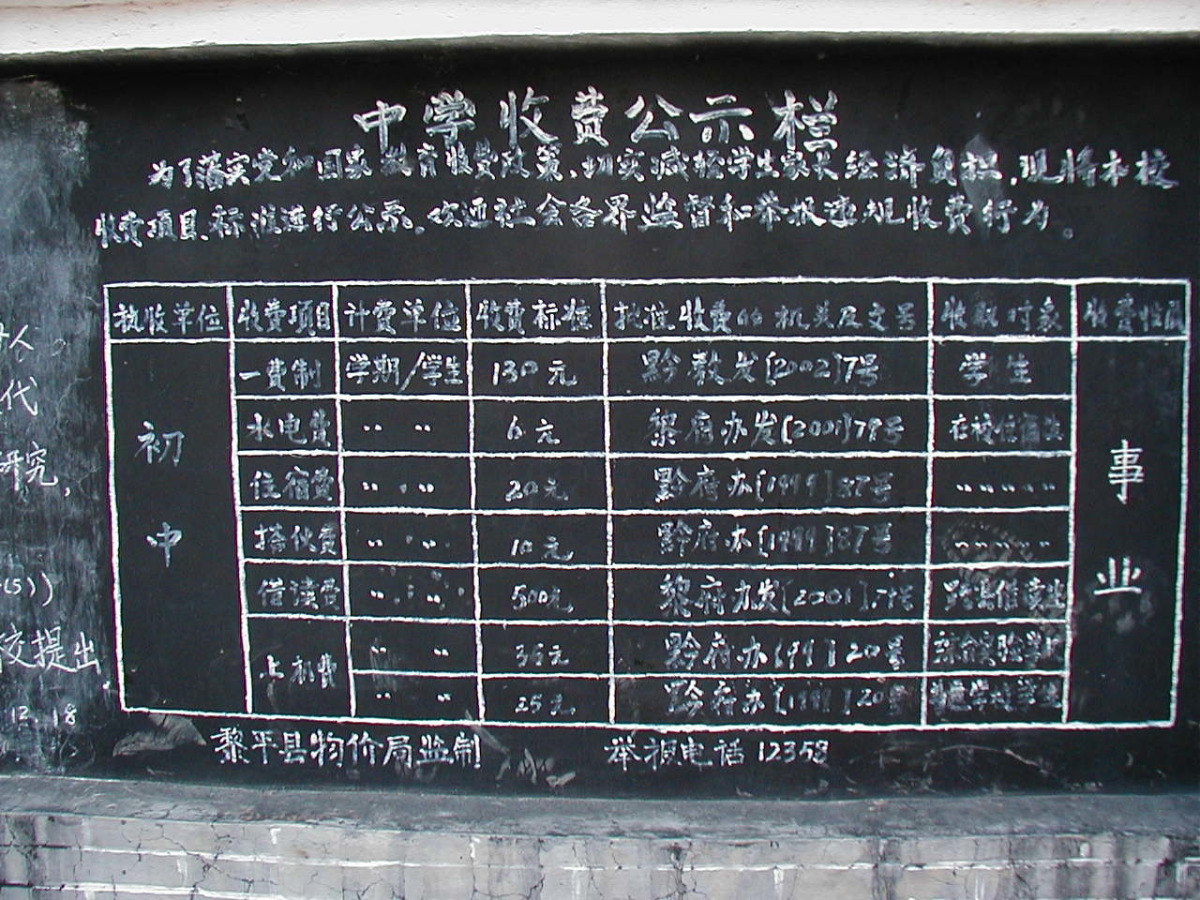 中学收费公示栏
为了落实党和国家教育收费政策、切实减轻学生家长经济负担,现将本校
收费项目、标准进行公示,欢迎社会各界监督和举报违规收费行为。
执收单位 收费项目 计费单位 收费标准 批准收费的机关及文号 收取对象 收费性质
初中
一费制 学期/学生 130元 黔教发[2002]7号 学生
水电费 〃 〃 6元 黎府办发[2001]79号 在校住宿生
住宿费 〃 〃 20元 黔府办[1999]87号 〃 〃 〃
搭伙费 〃 〃 10元 黔府办[1999]87号 〃 〃 〃
借读费 〃 〃 500元 黎府办发[2001] 借读生
上机费 〃 〃 35元 黔府办 20号 实验学校
〃 〃 25元 黔府办[1991]20号 学生
事业
黎平县物价局监制 举报电话12358
代
研究,
(5))
校提出
12.18